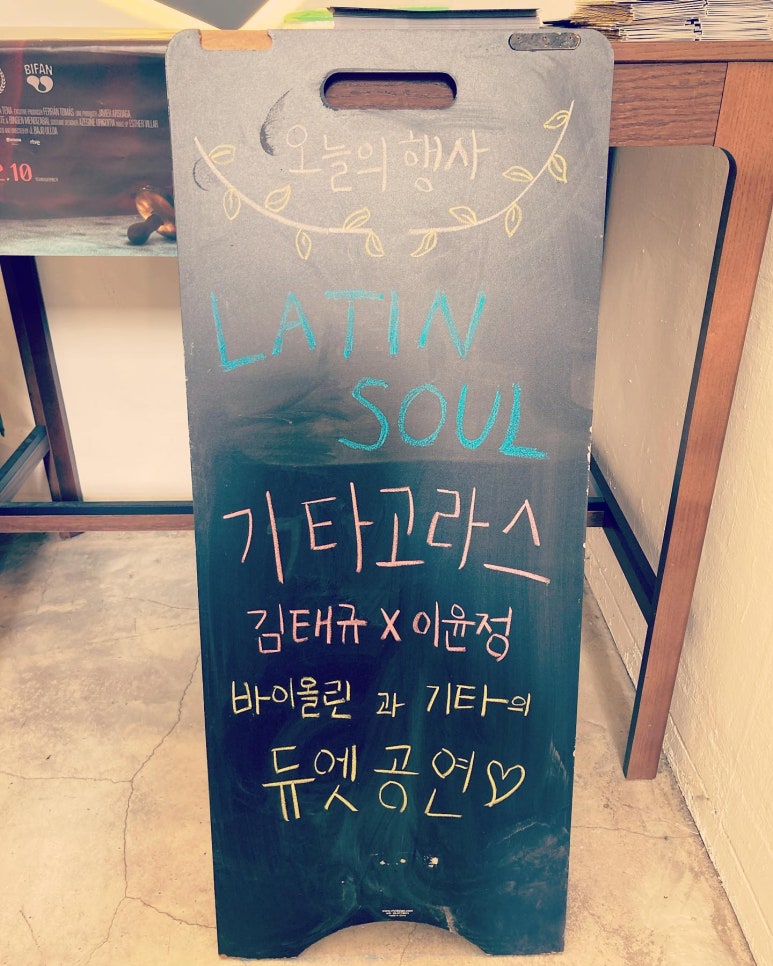 BIFAN
오늘의 행사
LATIN
SOUL
기타고라스
김태규 X 이윤정
바이올린 과 기타의
듀엣 공연♡